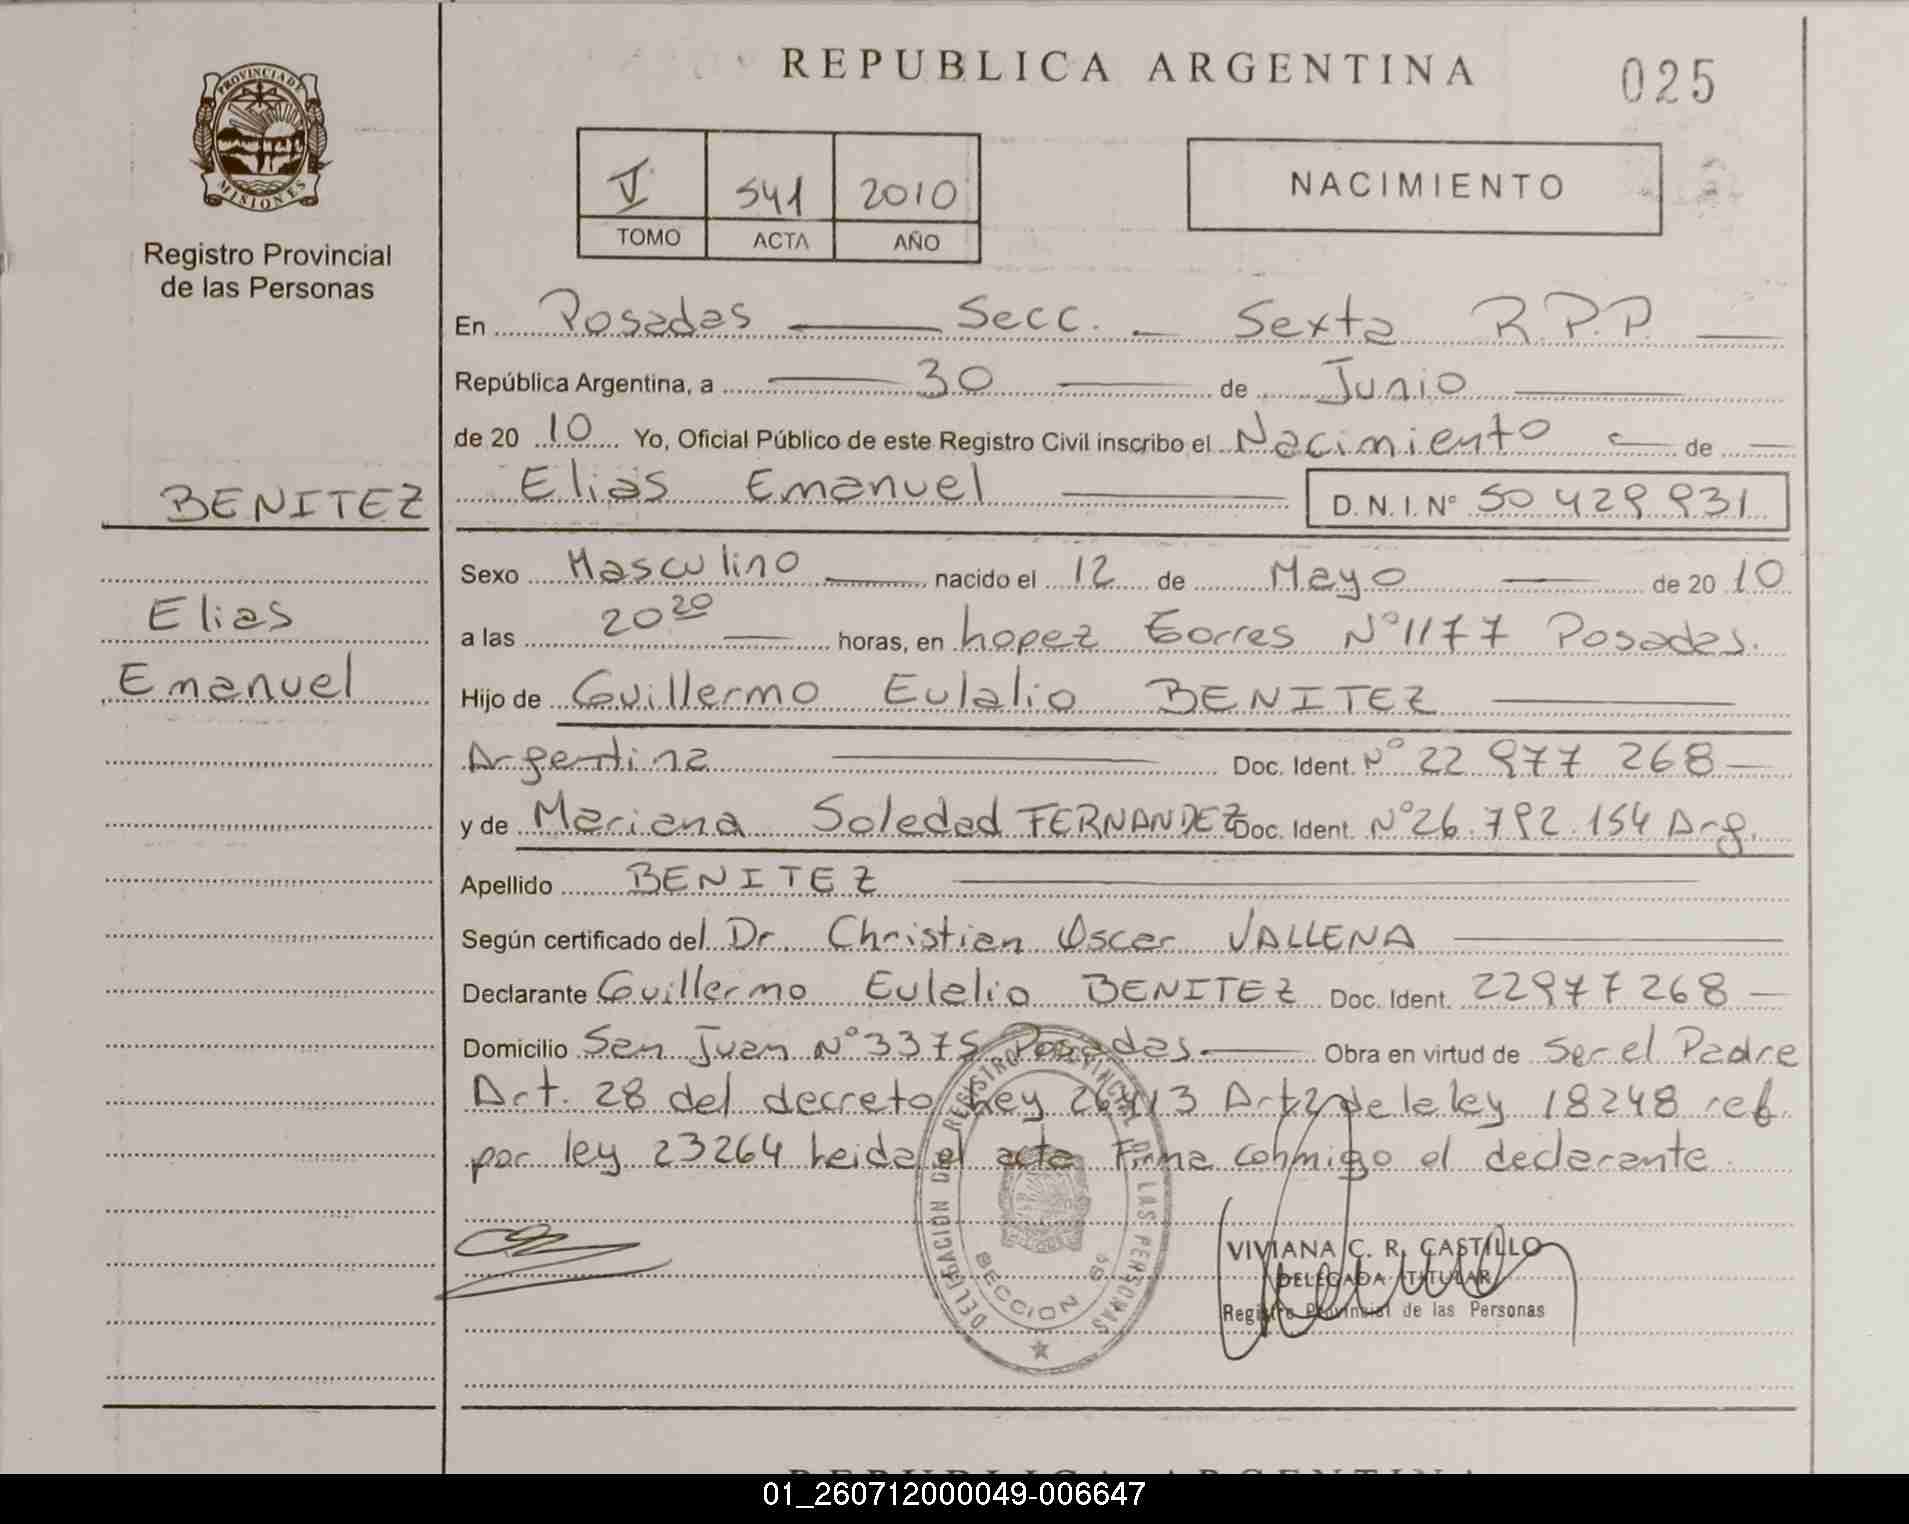 REPUBLICA ARGENTINA
025
PROVINCIA DE
MISIONES
Registro Provincial
de las Personas
V 541 2010
TOMO ACTA AÑO
NACIMIENTO
En Posadas Secc. Sexta R.P.P.
República Argentina, a 30 de Junio
de 20 10 Yo, Oficial Público de este Registro Civil inscribo el Nacimiento de
BENITEZ
Elias Emanuel D. N. I. Nº 50 429 931
Elias
Emanuel
Sexo Masculino nacido el 12 de Mayo de 20 10
a las 20 20 horas, en Lopez Torres Nº 1177 Posadas.
Hijo de Guillermo Eulalio BENITEZ
Argentina Doc. Ident. Nº 22 977 268
y de Mariana Soledad FERNANDEZ Doc. Ident. Nº 26.792.154 Arg.
Apellido BENITEZ
Según certificado del Dr. Christian Oscar VALLENA
Declarante Guillermo Eulalio BENITEZ Doc. Ident. 22977268
Domicilio San Juan Nº 3375 Posadas Obra en virtud de Ser el Padre
Art. 28 del decreto Ley 26413 Art 2 de la ley 18248 ref
por ley 23264 Leida el acta Firma conmigo el declarante
DELEGACION DEL REGISTRO PROVINCIAL DE LAS PERSONAS
SECCION 6º
VIVIANA C. R. CASTILLO
DELEGADA TITULAR
Registro Provincial de las Personas
REPUBLICA ARGENTINA
01_260712000049-006647